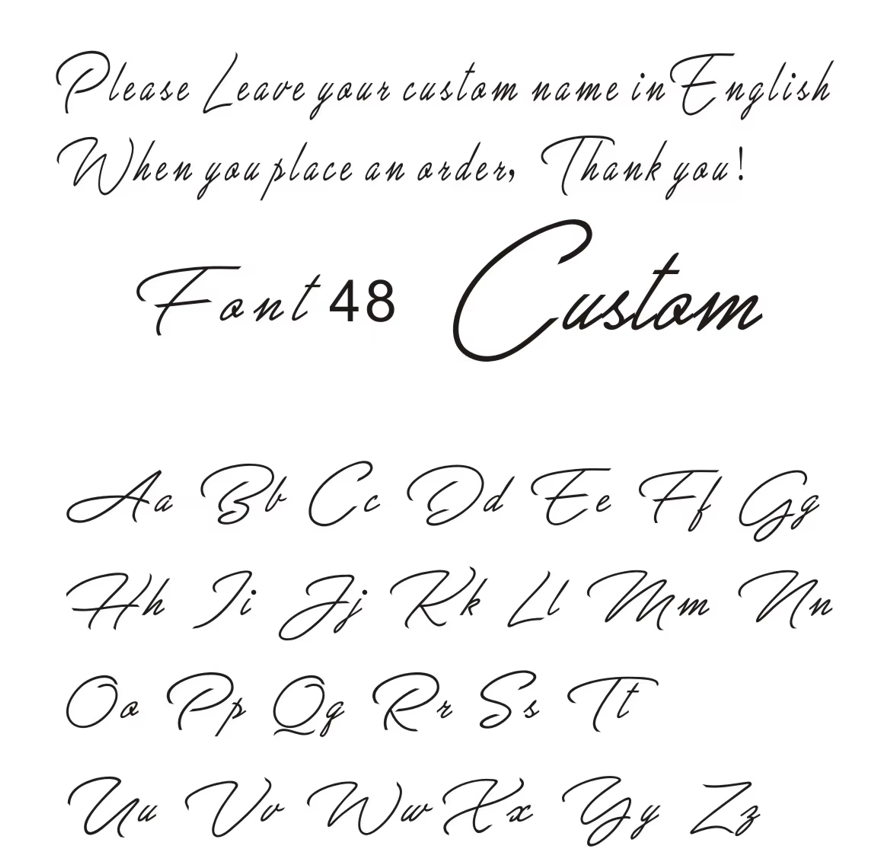 Please Leave your custom name in English
When you place an order, Thank you!
Font 48 Custom
Aa Bb Cc Dd Ee Ff Gg
Hh Ii Jj Kk Ll Mm Nn
Oo Pp Qq Rr Ss Tt
Uu Vv Ww Xx Yy Zz